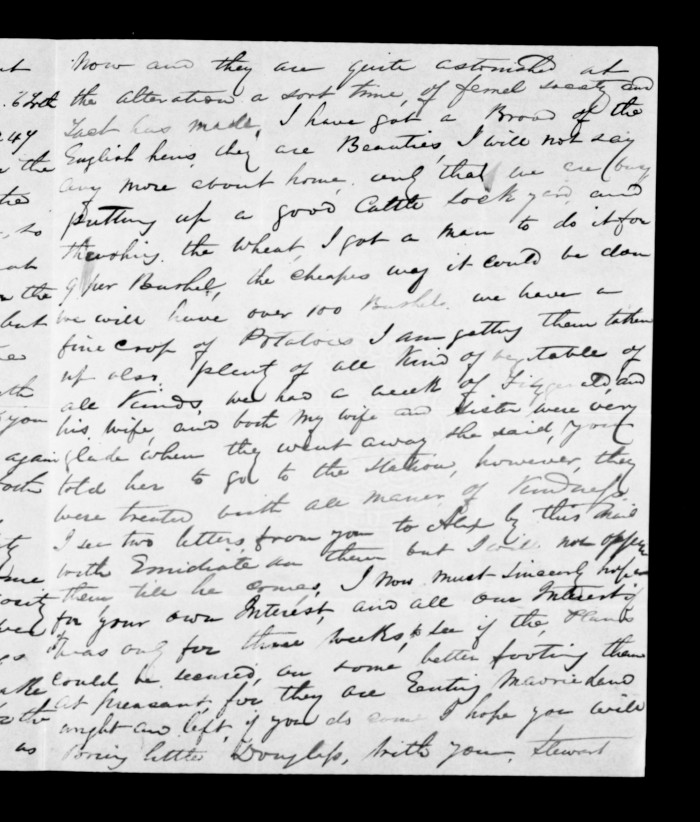 Now and they are quite astonished at
the alteration a sort time, of femel society and
Tact has made, I have got a Brood of the
English hens they are Beauties, I will not say
any more about home. only that we are busy
putting up a good Cattle Sock yard, and
thrashing the wheat, I got a man to do it for
9 per Bushel, the cheapes way it could be don
we will have over 100 Bushels. we have a
fine Crop of Potatoes I am getting them taken
up also. plenty of all Kind of vegtable of
all Kinds, we had a week of and
his wife, and both My wife and Sister were very
glade when they went away she said, you
told her to go to the Station, however, they
were treated with all maner of Kindness.
I see two letters from you to Alex by this Mail
with Emidiate on them but I will not oppen
them till he comes, I Now must Sincerly hope
for your own Interest, and all our Interest if
it was only for three weeks, to see if the Plans
could be secured, on some better footing then
at preasant, for they are Eating
wright and left, if you do come I hope you will
bring little Douglass, with you, Stewart
at
247
the
so
at
the
but
you
again
as